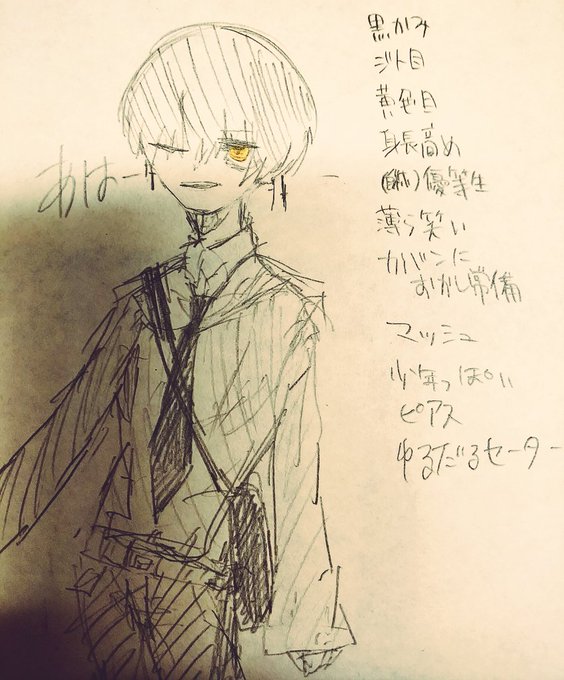 あはー
黒かみ
ジト目
黄色目
身長高め
優等生
薄ら笑い
カバンに
おかし常備
マッシュ
少年っぽい
ピアス
ゆるだるセーター